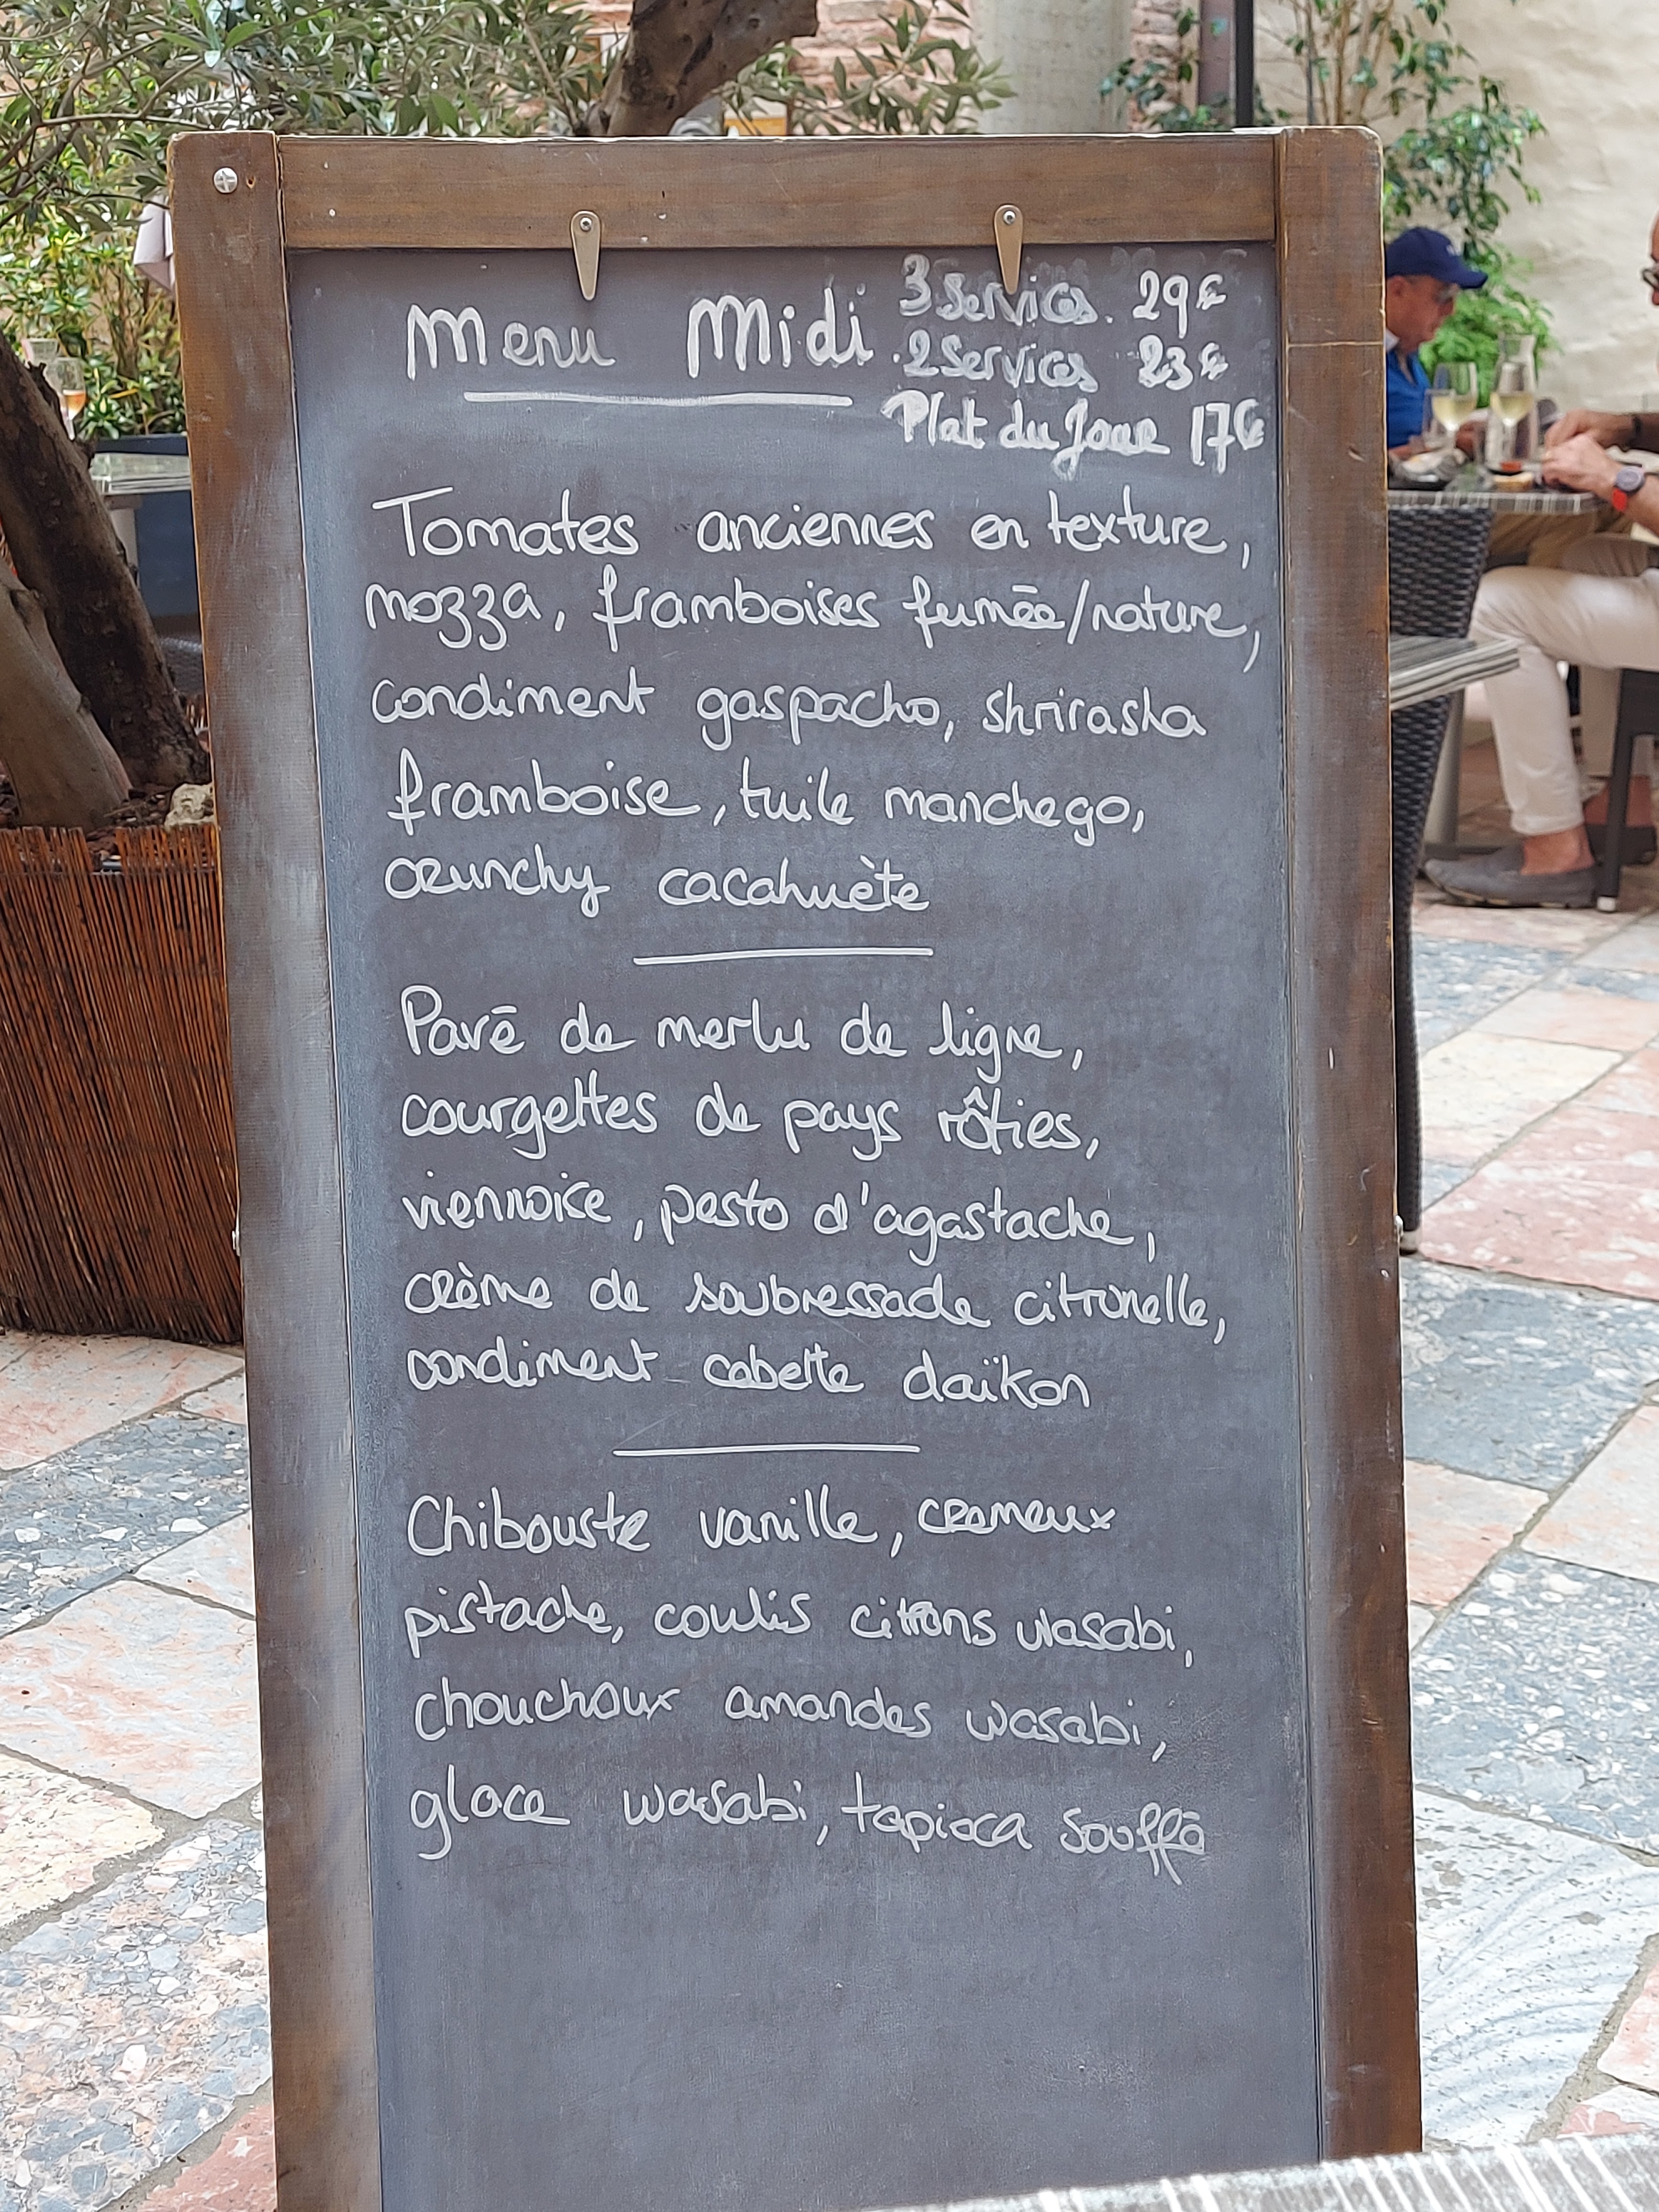 Menu Midi
3 Services. 29€
2 Services 23€
Plat du Jour 17€
Tomates anciennes en texture,
mozza, framboises fumée/nature,
condiment gaspacho, shrirasha
framboise, tuile manchego,
crunchy cacahuète
Pavé de merlu de ligne,
courgettes de pays rôties,
viennoise, pesto d'agastache,
crème de soubressade citronelle,
condiment cebette daïkon
Chibouste vanille, cremeux
pistache, coulis citrons wasabi,
chouchoux amandes wasabi,
glace wasabi, tapioca souffé